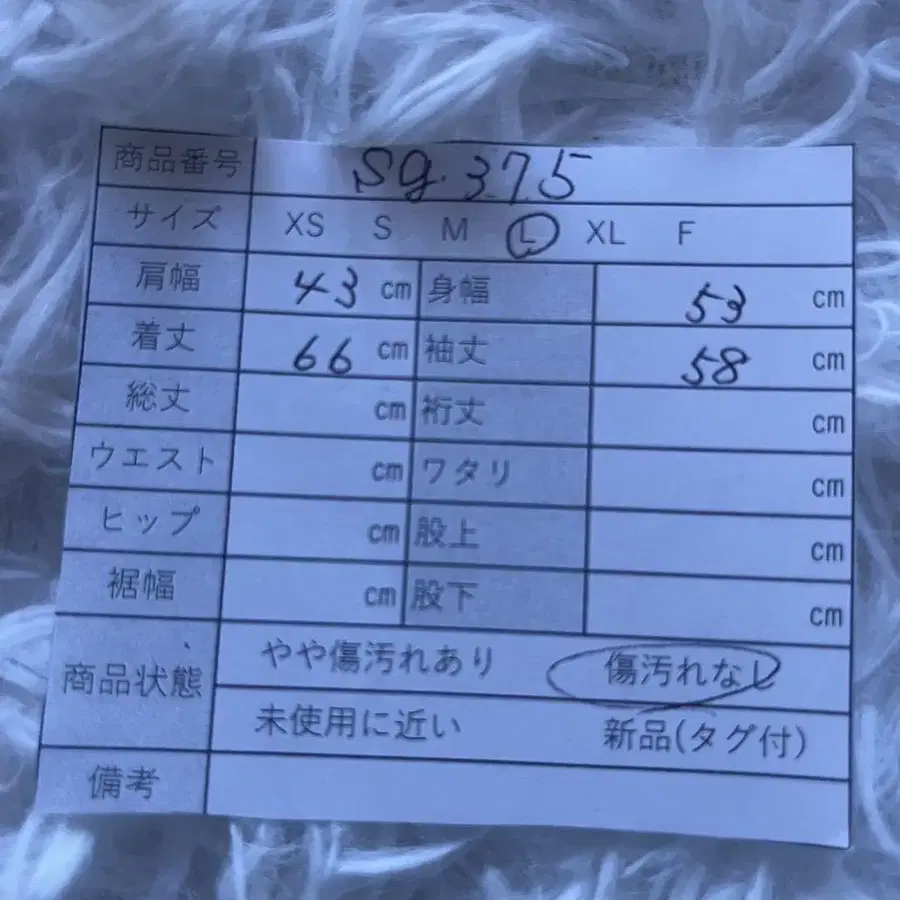 商品番号 sg.375
サイズ XS S M L XL F
肩幅 43 cm 身幅 53 cm
着丈 66 cm 袖丈 58 cm
総丈 cm 裄丈 cm
ウエスト cm ワタリ cm
ヒップ cm 股上 cm
裾幅 cm 股下 cm
商品状態 やや傷汚れあり 傷汚れなし
未使用に近い 新品(タグ付)
備考